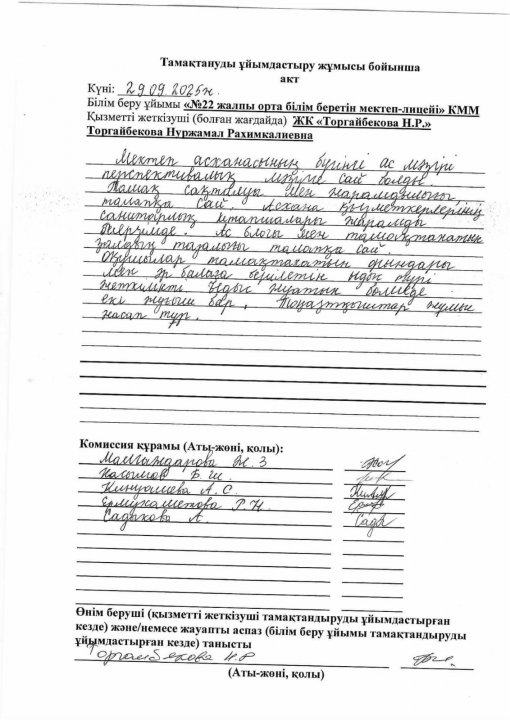 Тамақтануды ұйымдастыру жұмысы бойынша
акт
Күні: 29.09.2025ж.
Білім беру ұйымы «№22 жалпы орта білім беретін мектеп-лицейі» КММ
Қызметті жеткізуші (болған жағдайда) ЖК «Торгайбекова Н.Р.»
Торгайбекова Нуржамал Рахимкалиевна
Мектеп асханасының бүгінгі ас мәзірі
перспективалық мәзірге сай болды.
Тамақ сақталуы мен жарамдылығы,
талапқа сай. Асхана қызметкерлерінің
санитарлық кітапшалары жарамды
мерзімде. Ас блогы мен тамақтанатын
залдың тазалығы талапқа сай.
Оқушылар тамақтанатын орындары
мен әр балаға берілетін ыдыс түрі
жеткілікті. Ыдыс жуатын бөлмеде
екі жуғыш бар, Тоңазытқыштар жұмыс
жасап тұр.
Комиссия құрамы (Аты-жөні, қолы):
Ж. З
Касымов Б. Ш.
А. С.
Ермухаметова Р. Н.
Садыкова А.
Өнім беруші (қызметті жеткізуші тамақтандыруды ұйымдастырған
кезде) және/немесе жауапты аспаз (білім беру ұйымы тамақтандыруды
ұйымдастырған кезде) танысты
Торгайбекова Н.Р
(Аты-жөні, қолы)